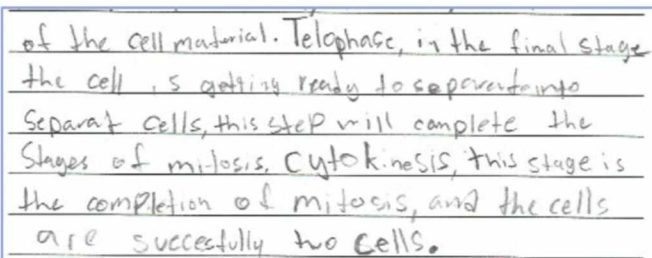 of the cell material. Telophase, in the final stage
the cell is getting ready to seperate into
Separat cells, this step will complete the
Stages of mitosis. Cytokinesis, this stage is
the completion of mitosis, and the cells
are succesfully two cells.